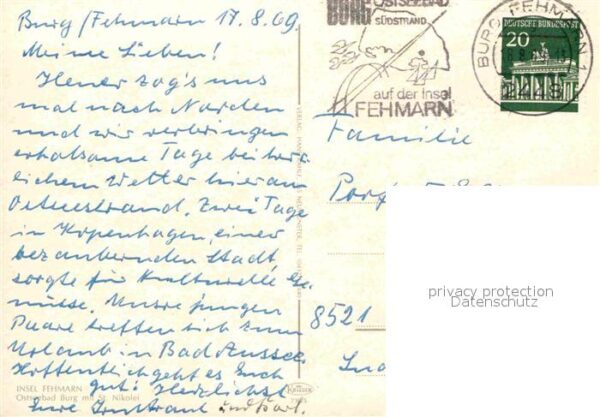 Burg/Fehmarn 17.8.69
Meine Lieben!
Heuer zog's uns
mal nach Norden
und wir verbringen
erholsame Tage bei herr-
lichem Wetter hier am
Ostseestrand. Zwei Tage
in Kopenhagen, einer
bezaubernden Stadt
sorgte für kulturelle Ge-
nüsse. Unsre jungen
Paare treffen sich zum
Urlaub in Bad Aussee.
Hoffentlich geht es Euch
gut! Herzlichst
Eure
INSEL FEHMARN
Ostseebad Burg mit St. Nikolai
BURG OSTSEEBAD
SÜDSTRAND
auf der Insel
FEHMARN
BURG FEHMARN 1
2448
DEUTSCHE BUNDESPOST
20
Familie
8521
privacy protection
Datenschutz